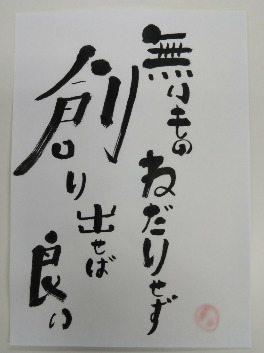 無いものねだりせず
創り出せば良い